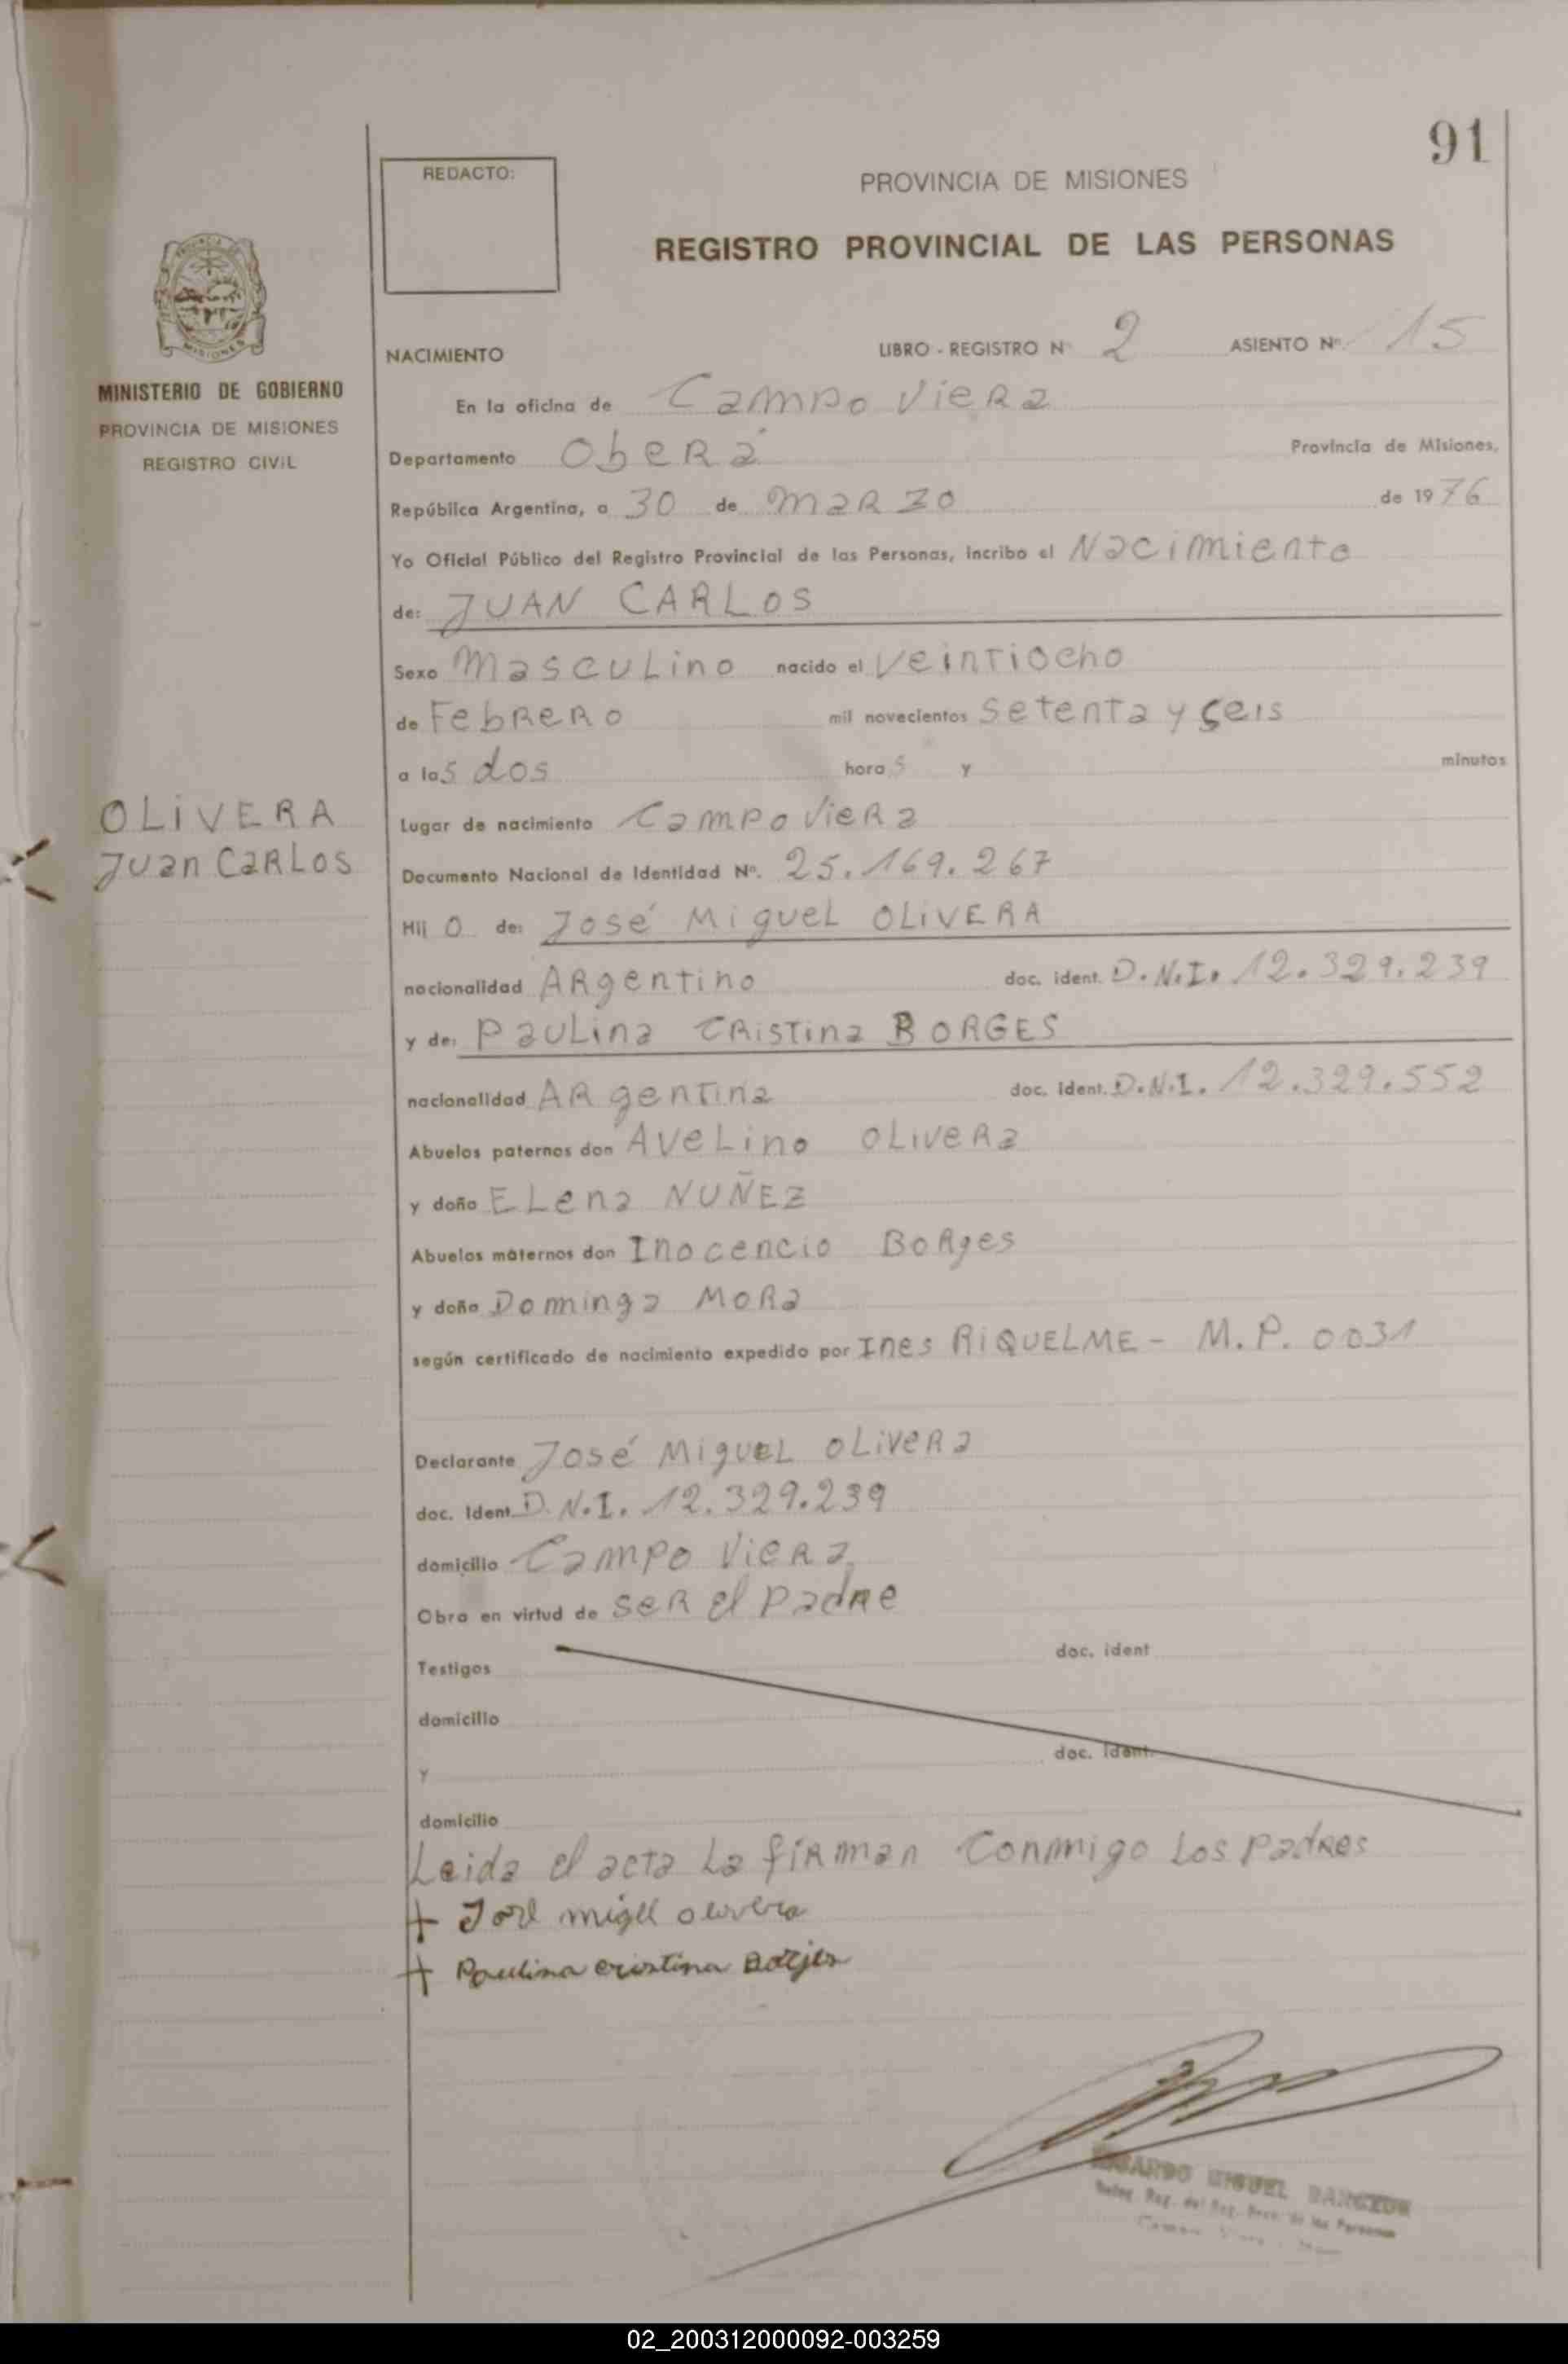 91
REDACTO:
PROVINCIA DE MISIONES
REGISTRO PROVINCIAL DE LAS PERSONAS
MISIONES
MINISTERIO DE GOBIERNO
PROVINCIA DE MISIONES
REGISTRO CIVIL
NACIMIENTO LIBRO - REGISTRO N° 2 ASIENTO Nº. 15
En la oficina de Campo Viera
Departamento Oberá Provincia de Misiones,
República Argentina, a 30 de Marzo de 1976
Yo Oficial Público del Registro Provincial de las Personas, incribo el Nacimiento
de: JUAN CARLOS
Sexo Masculino nacido el Veintiocho
de Febrero mil novecientos Setenta y Seis
a las dos horas y minutos
OLIVERA
Juan Carlos
Lugar de nacimiento Campo Viera
Documento Nacional de Identidad Nº. 25.169.267
Hijo de: José Miguel OLIVERA
nacionalidad Argentino doc. ident. D.N.I. 12.329.239
y de: Paulina Cristina BORGES
nacionalidad Argentina doc. ident. D.N.I. 12.329.552
Abuelos paternos don Avelino Olivera
y doña Elena NUÑEZ
Abuelos maternos don Inocencio Borges
y doña Dominga Mora
según certificado de nacimiento expedido por Ines RIQUELME - M.P. 0031
Declarante José Miguel Olivera
doc. Ident. D.N.I. 12.329.239
domicilio Campo Viera
Obra en virtud de ser el padre
Testigos doc. ident
domicilio
y doc. Ident.
domicilio
Leida el acta la firman conmigo los padres
+ José migel olivera
+ Paulina cristina Borjes
MIGUEL
de las Personas
02_200312000092-003259